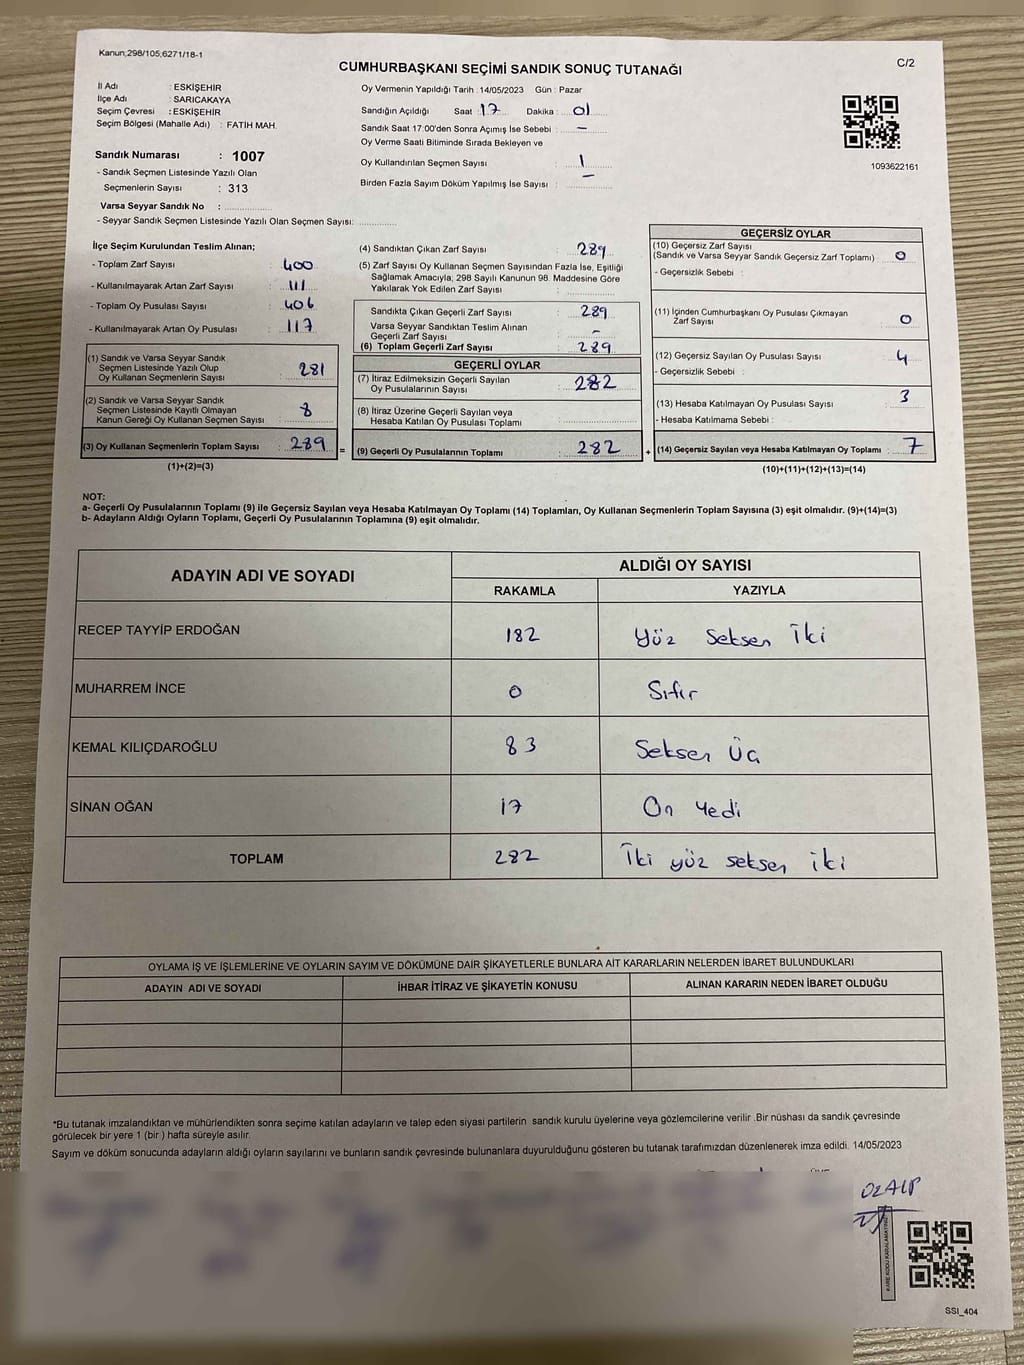 Kanun;298/105;6271/18-1
C/2
CUMHURBAŞKANI SEÇİMİ SANDIK SONUÇ TUTANAĞI
İl Adı : ESKİŞEHİR
İlçe Adı : SARICAKAYA
Seçim Çevresi : ESKİŞEHİR
Seçim Bölgesi (Mahalle Adı) : FATİH MAH.
Sandık Numarası : 1007
- Sandık Seçmen Listesinde Yazılı Olan
Seçmenlerin Sayısı : 313
Varsa Seyyar Sandık No :
- Seyyar Sandık Seçmen Listesinde Yazılı Olan Seçmen Sayısı:
Oy Vermenin Yapıldığı Tarih : 14/05/2023 Gün : Pazar
Sandığın Açıldığı Saat 17 Dakika : 01
Sandık Saat 17:00'den Sonra Açımış İse Sebebi : -
Oy Verme Saati Bitiminde Sırada Bekleyen ve
Oy Kullandırılan Seçmen Sayısı : 1
Birden Fazla Sayım Döküm Yapılmış İse Sayısı : -
1093622161
İlçe Seçim Kurulundan Teslim Alınan;
- Toplam Zarf Sayısı : 400
- Kullanılmayarak Artan Zarf Sayısı : 111
- Toplam Oy Pusulası Sayısı : 406
- Kullanılmayarak Artan Oy Pusulası : 117
(1) Sandık ve Varsa Seyyar Sandık
Seçmen Listesinde Yazılı Olup
Oy Kullanan Seçmenlerin Sayısı : 281
(2) Sandık ve Varsa Seyyar Sandık
Seçmen Listesinde Kayıtlı Olmayan
Kanun Gereği Oy Kullanan Seçmen Sayısı : 8
(3) Oy Kullanan Seçmenlerin Toplam Sayısı : 289
(1)+(2)=(3)
(4) Sandıktan Çıkan Zarf Sayısı : 289
(5) Zarf Sayısı Oy Kullanan Seçmen Sayısından Fazla İse, Eşitliği
Sağlamak Amacıyla; 298 Sayılı Kanunun 98. Maddesine Göre
Yakılarak Yok Edilen Zarf Sayısı :
Sandıkta Çıkan Geçerli Zarf Sayısı : 289
Varsa Seyyar Sandıktan Teslim Alınan
Geçerli Zarf Sayısı : -
(6) Toplam Geçerli Zarf Sayısı : 289
GEÇERLİ OYLAR
(7) İtiraz Edilmeksizin Geçerli Sayılan
Oy Pusulalarının Sayısı : 282
(8) İtiraz Üzerine Geçerli Sayılan veya
Hesaba Katılan Oy Pusulası Toplamı :
= (9) Geçerli Oy Pusulalarının Toplamı : 282
GEÇERSİZ OYLAR
(10) Geçersiz Zarf Sayısı
(Sandık ve Varsa Seyyar Sandık Geçersiz Zarf Toplamı) : 0
- Geçersizlik Sebebi :
(11) İçinden Cumhurbaşkanı Oy Pusulası Çıkmayan
Zarf Sayısı : 0
(12) Geçersiz Sayılan Oy Pusulası Sayısı : 4
- Geçersizlik Sebebi :
(13) Hesaba Katılmayan Oy Pusulası Sayısı : 3
- Hesaba Katılmama Sebebi :
+ (14) Geçersiz Sayılan veya Hesaba Katılmayan Oy Toplamı : 7
(10)+(11)+(12)+(13)=(14)
NOT:
a- Geçerli Oy Pusulalarının Toplamı (9) ile Geçersiz Sayılan veya Hesaba Katılmayan Oy Toplamı (14) Toplamları, Oy Kullanan Seçmenlerin Toplam Sayısına (3) eşit olmalıdır. (9)+(14)=(3)
b- Adayların Aldığı Oyların Toplamı, Geçerli Oy Pusulalarının Toplamına (9) eşit olmalıdır.
ADAYIN ADI VE SOYADI
ALDIĞI OY SAYISI
RAKAMLA YAZIYLA
RECEP TAYYİP ERDOĞAN 182 Yüz Seksen İki
MUHARREM İNCE 0 Sıfır
KEMAL KILIÇDAROĞLU 83 Seksen Üç
SİNAN OĞAN 17 On Yedi
TOPLAM 282 İki yüz seksen iki
OYLAMA İŞ VE İŞLEMLERİNE VE OYLARIN SAYIM VE DÖKÜMÜNE DAİR ŞİKAYETLERLE BUNLARA AİT KARARLARIN NELERDEN İBARET BULUNDUKLARI
ADAYIN ADI VE SOYADI İHBAR İTİRAZ VE ŞİKAYETİN KONUSU ALINAN KARARIN NEDEN İBARET OLDUĞU
*Bu tutanak imzalandıktan ve mühürlendikten sonra seçime katılan adayların ve talep eden siyasi partilerin sandık kurulu üyelerine veya gözlemcilerine verilir .Bir nüshası da sandık çevresinde
görülecek bir yere 1 (bir ) hafta süreyle asılır.
Sayım ve döküm sonucunda adayların aldığı oyların sayılarını ve bunların sandık çevresinde bulunanlara duyurulduğunu gösteren bu tutanak tarafımızdan düzenlenerek imza edildi. 14/05/2023
OZALP
KARE KODU KARALAMAYINIZ
SSI_404